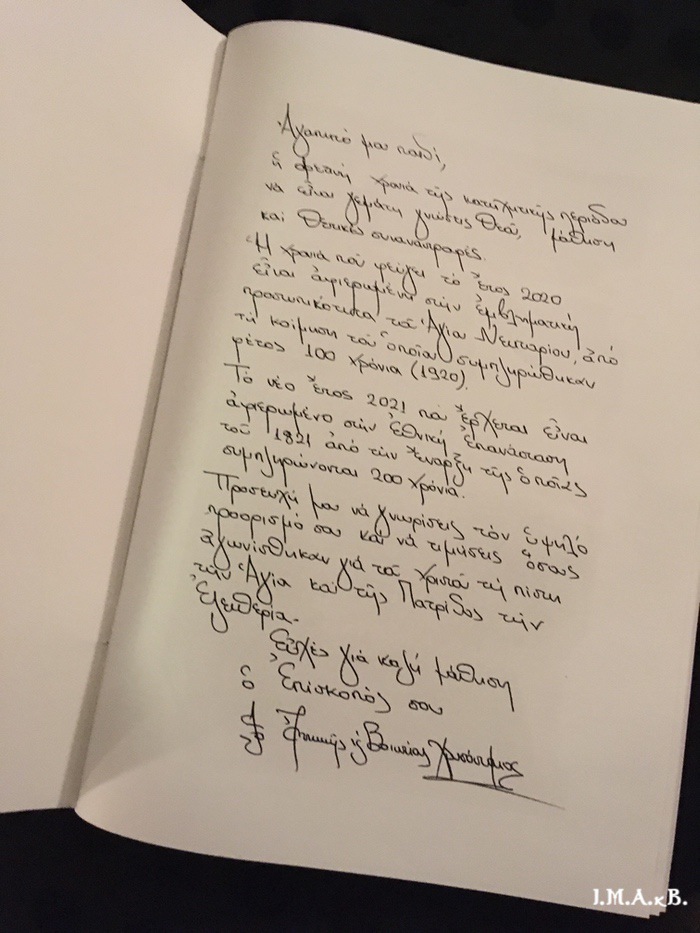 Ἀγαπητό μου παιδί,
ἡ φετεινή χρονιά τῆς κατηχητικῆς περιόδου
νά εἶναι γεμάτη γνώσεις Θεοῦ, μάθηση
καί θετικές συναναστροφές.
Ἡ χρονιά πού φεύγει τό ἔτος 2020
εἶναι ἀφιερωμένη στήν ἐμβληματική
προσωπικότητα τοῦ Ἁγίου Νεκταρίου, ἀπό
τή κοίμηση τοῦ ὁποίου συμπληρώθηκαν
φέτος 100 χρόνια (1920).
Τό νέο ἔτος 2021 πού ἔρχεται εἶναι
ἀφιερωμένο στήν ἐθνική ἐπανάσταση
τοῦ 1821 ἀπό τήν ἔναρξη τῆς ὁποίας
συμπληρώνονται 200 χρόνια.
Προσευχή μου νά γνωρίσεις τόν ὑψηλό
προορισμό σου καί νά τιμήσεις ὅσους
ἀγωνίσθηκαν γιά τοῦ Χριστοῦ τή πίστη
τήν Ἁγία καί τῆς Πατρίδος τήν
Ἐλευθερία.
Εὐχές γιά καλή μάθηση
ὁ Ἐπίσκοπός σου
Βοιωτίας Χρυσόστομος
Ι.Μ.Α.κ Β.